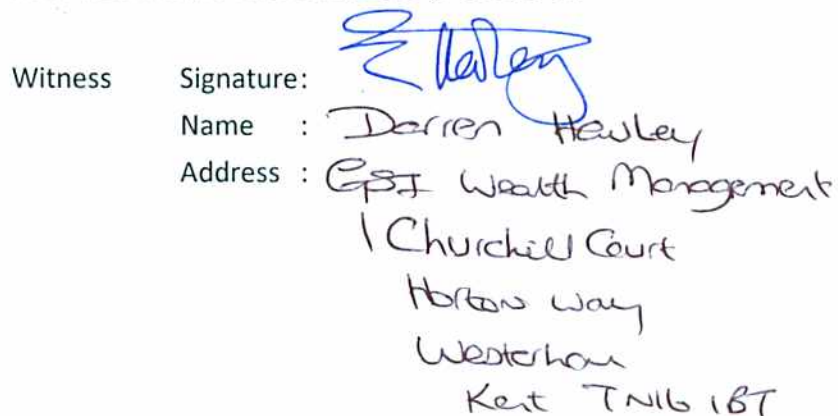 Witness Signature:
Name : Darren Hawley
Address : GSI Wealth Management
1 Churchill Court
Horton Way
Westerham
Kent TN16 1BT